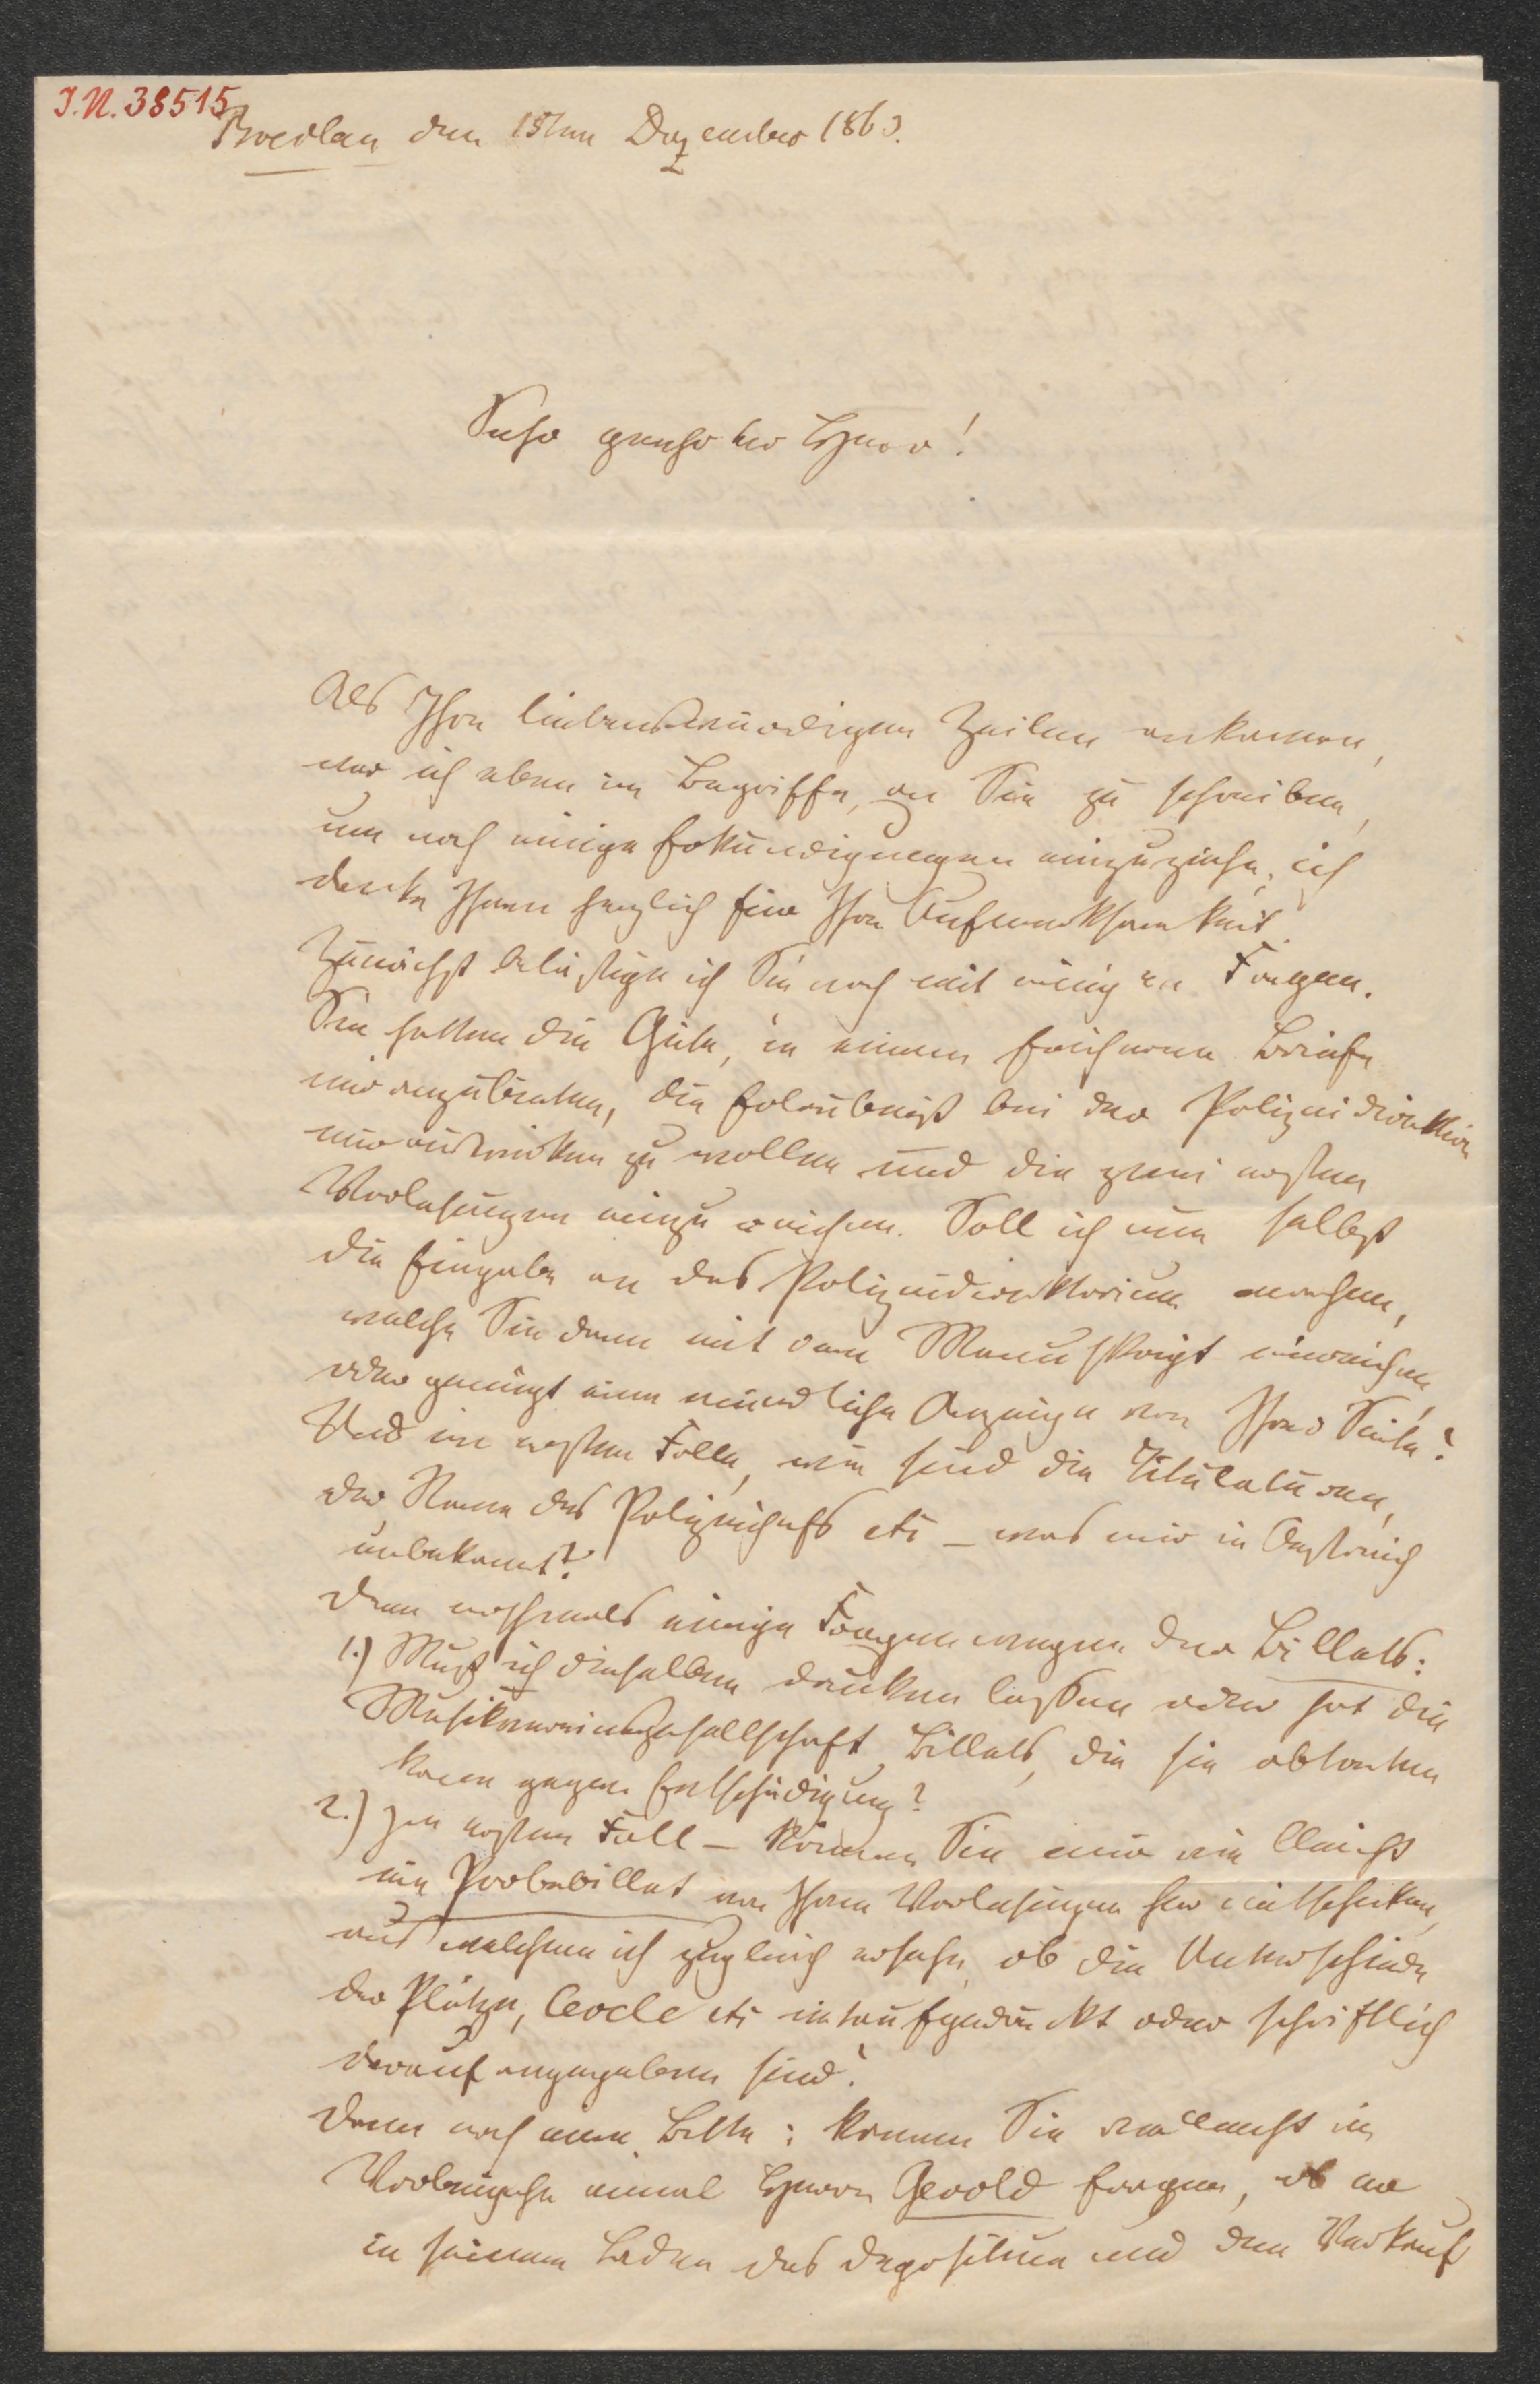 I.N. 38515
Breslau den 15ten Dezember 1863.
Sehr geehrter Herr!
Als Ihre liebenswürdigen Zeilen ankamen,
war ich eben im Begriffe, an Sie zu schreiben,
um noch einige Erkundigungen einzuziehn; ich
danke Ihnen herzlich für Ihre Aufmerksamkeit.
Zunächst belästige ich Sie noch mit einigen Fragen.
Sie hatten die Güte, in einem früheren Briefe
mir anzubieten, die Erlaubniß bei der Polizeidirektion
mir auswirken zu wollen und die zwei ersten
Vorlesungen einzureichen. Soll ich nun selbst
die Eingabe an das Polizeidirektorium machen,
welche Sie dann mit dem Manuskript einreichen,
oder genügt eine mündliche Anzeige von Ihrer Seite?
Und im ersten Falle, wie sind die Titulaturen,
der Name des Polizeichefs etc – was mir in Oestreich
unbekannt?
Dann nochmals einige Fragen wegen der Billets:
1.) Muß ich dieselben drucken lassen oder hat die
Musikvereinsgesellschaft Billets, die sie abtreten
kann gegen Entschädigung?
2.) Im ersten Fall – können Sie mir vielleicht
ein Probebillet von Ihren Vorlesungen her mitschicken,
aus welchem ich zugleich ersehe, ob die Unterschiede
der Plätze, Cercle etc mit aufgedruckt oder schriftlich
darauf angegeben sind?
Dann noch eine Bitte: können Sie vielleicht im
Vorbeigehn einmal Herrn Gerold fragen, ob er
in seinem Laden das Depositum und den Verkauf